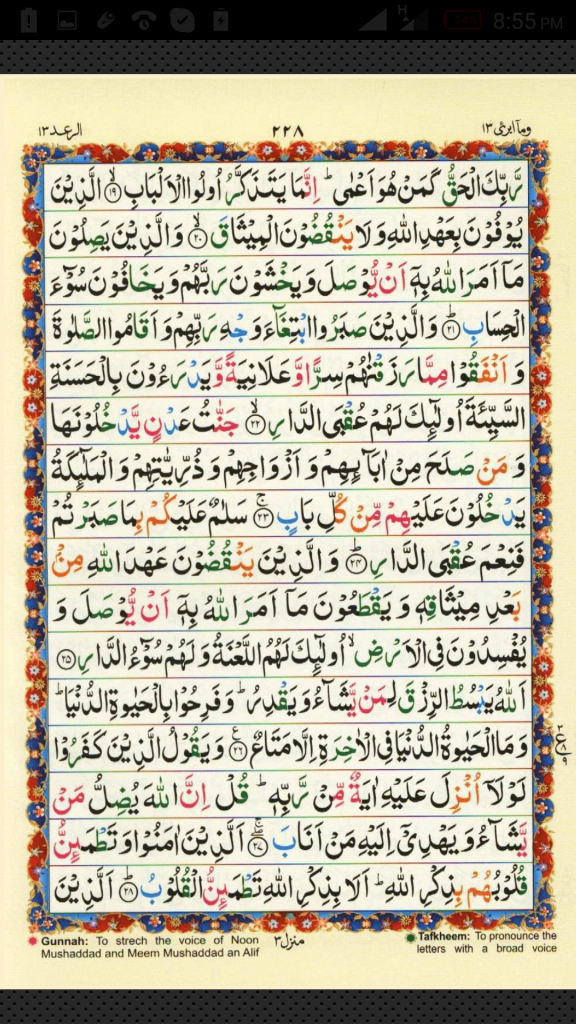 8:55 PM
H
14%
الرعد ۱۳
۲۲۸
وما ابرئ ۱۳
رَّبِّكَ الۡحَقُّ كَمَنۡ هُوَ اَعۡمٰى ؕ اِنَّمَا يَتَذَكَّرُ اُولُوا الۡاَلۡبَابِ ۙ‏﴿۱۹﴾ الَّذِيۡنَ
يُوۡفُوۡنَ بِعَهۡدِ اللّٰهِ وَلَا يَنۡقُضُوۡنَ الۡمِيۡثَاقَ ۙ‏﴿۲۰﴾ وَالَّذِيۡنَ يَصِلُوۡنَ
مَاۤ اَمَرَ اللّٰهُ بِهٖۤ اَنۡ يُّوۡصَلَ وَيَخۡشَوۡنَ رَبَّهُمۡ وَيَخَافُوۡنَ سُوۡٓءَ
الۡحِسَابِ ؕ‏﴿۲۱﴾ وَالَّذِيۡنَ صَبَرُوا ابۡتِغَآءَ وَجۡهِ رَبِّهِمۡ وَاَقَامُوا الصَّلٰوةَ
وَاَنۡفَقُوۡا مِمَّا رَزَقۡنٰهُمۡ سِرًّا وَّعَلَانِيَةً وَّيَدۡرَءُوۡنَ بِالۡحَسَنَةِ
السَّيِّئَةَ اُولٰٓٮِٕكَ لَهُمۡ عُقۡبَى الدَّارِ ۙ‏﴿۲۲﴾ جَنّٰتُ عَدۡنٍ يَّدۡخُلُوۡنَهَا
وَمَنۡ صَلَحَ مِنۡ اٰبَآٮِٕهِمۡ وَاَزۡوَاجِهِمۡ وَذُرِّيّٰتِهِمۡ وَالۡمَلٰٓٮِٕكَةُ
يَدۡخُلُوۡنَ عَلَيۡهِمۡ مِّنۡ كُلِّ بَابٍ ۚ‏﴿۲۳﴾ سَلٰمٌ عَلَيۡكُمۡ بِمَا صَبَرۡتُمۡ
فَنِعۡمَ عُقۡبَى الدَّارِ ؕ‏﴿۲۴﴾ وَالَّذِيۡنَ يَنۡقُضُوۡنَ عَهۡدَ اللّٰهِ مِنۡۢ
بَعۡدِ مِيۡثَاقِهٖ وَيَقۡطَعُوۡنَ مَاۤ اَمَرَ اللّٰهُ بِهٖۤ اَنۡ يُّوۡصَلَ وَ
يُفۡسِدُوۡنَ فِى الۡاَرۡضِ ۙ اُولٰٓٮِٕكَ لَهُمُ اللَّعۡنَةُ وَلَهُمۡ سُوۡٓءُ الدَّارِ‏﴿۲۵﴾
اَللّٰهُ يَبۡسُطُ الرِّزۡقَ لِمَنۡ يَّشَآءُ وَيَقۡدِرُ ؕ وَفَرِحُوۡا بِالۡحَيٰوةِ الدُّنۡيَا ؕ
وَمَا الۡحَيٰوةُ الدُّنۡيَا فِى الۡاٰخِرَةِ اِلَّا مَتَاعٌ ‏﴿۲۶﴾ وَيَقُوۡلُ الَّذِيۡنَ كَفَرُوۡا
لَوۡلَاۤ اُنۡزِلَ عَلَيۡهِ اٰيَةٌ مِّنۡ رَّبِّهٖ ؕ قُلۡ اِنَّ اللّٰهَ يُضِلُّ مَنۡ
يَّشَآءُ وَيَهۡدِىۡۤ اِلَيۡهِ مَنۡ اَنَابَ ‏﴿۲۷﴾ اَلَّذِيۡنَ اٰمَنُوۡا وَتَطۡمَٮِٕنُّ
قُلُوۡبُهُمۡ بِذِكۡرِ اللّٰهِ ؕ اَلَا بِذِكۡرِ اللّٰهِ تَطۡمَٮِٕنُّ الۡقُلُوۡبُ ؕ‏﴿۲۸﴾ اَلَّذِيۡنَ
Gunnah: To strech the voice of Noon
Mushaddad and Meem Mushaddad an Alif
منزل ۳
Tafkheem: To pronounce the
letters with a broad voice